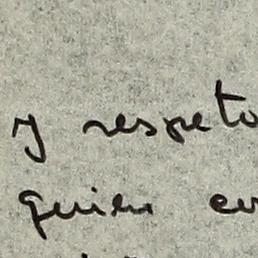 y respeto
quien en